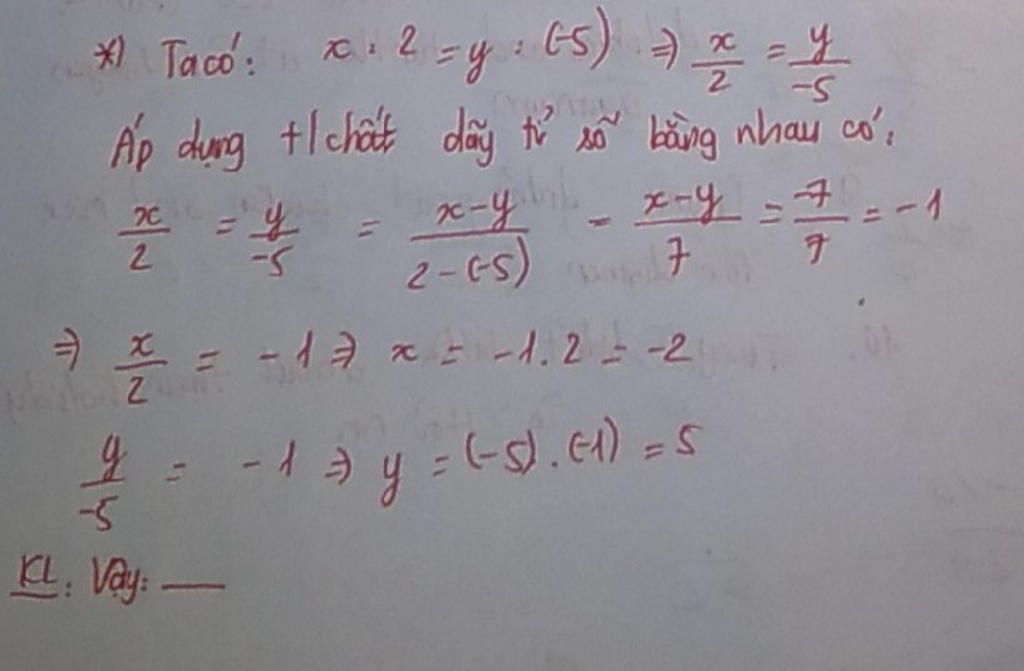 *) Ta có: x : 2 = y : (-5) ⇒ x/2 = y/-5
Áp dụng t/chất dãy tỉ số bằng nhau có:
x/2 = y/-5 = x-y/2-(-5) = x-y/7 = -7/7 = -1
⇒ x/2 = -1 ⇒ x = -1.2 = -2
y/-5 = -1 ⇒ y = (-5).(-1) = 5
KL: Vậy: —